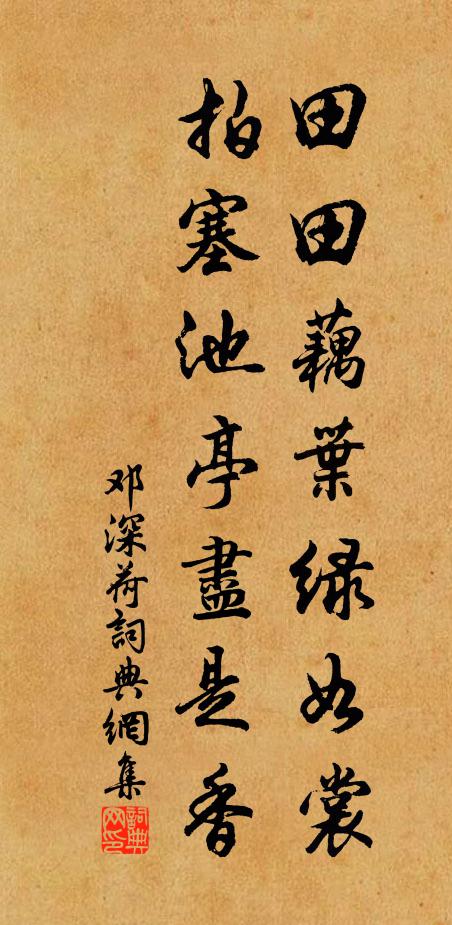 田田藕葉緑如裳
拍塞池亭盡是香
邓深荷詞典網集
詞典网印